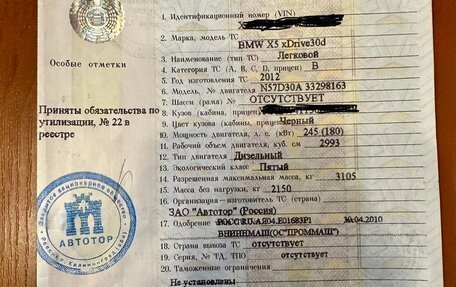 1. Идентификационный номер (VIN)
2. Марка, модель ТС
BMW X5 xDrive30d
3. Наименование (тип ТС) Легковой
4. Категория ТС (А, В, С, D, прицеп) B
5. Год изготовления ТС 2012
6. Модель, № двигателя N57D30A 33298163
7. Шасси (рама) № ОТСУТСТВУЕТ
8. Кузов (кабина, прицеп) №
9. Цвет кузова (кабины, прицепа) Черный
10. Мощность двигателя, л. с. (кВт) 245 (180)
11. Рабочий объем двигателя, куб. см 2993
12. Тип двигателя Дизельный
13. Экологический класс Пятый
14. Разрешенная максимальная масса, кг 3105
15. Масса без нагрузки, кг 2150
16. Организация–изготовитель ТС (страна)
ЗАО "Автотор" (Россия)
17. Одобрение РОСС RU.АЯ04.Е01683Р1 30.04.2010
ВНИИНМАШ(ОС"ПРОММАШ")
18. Страна вывоза ТС отсутствует
19. Серия, № ТД, ТПО отсутствует
20. Таможенные ограничения
Не установлены
Особые отметки
Приняты обязательства по
утилизации, № 22 в
реестре
АВТОТОР